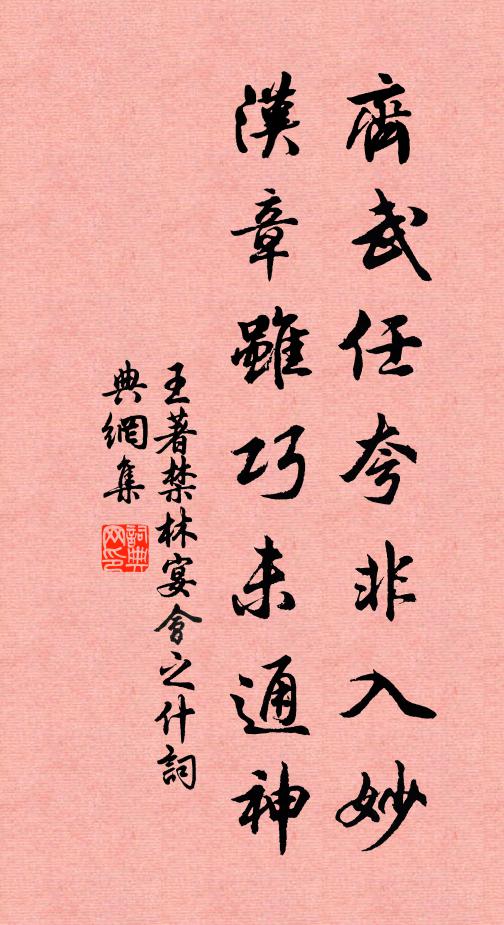 齊武任夸非入妙
漢章雖巧未通神
王著禁林宴會之什詞
典網集
詞典
网印